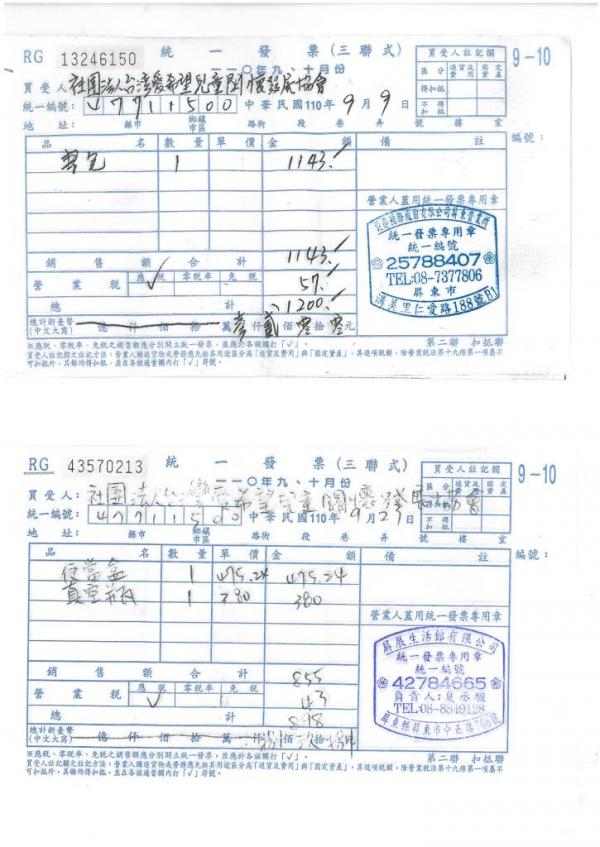 RG 13246150 統一發票(三聯式) 9-10
一一○年九、十月份
買受人註記欄
區分 進貨及費用 固定資產
得扣抵
不得扣抵
買受人: 社團法人台灣愛希望兒童關懷發展協會
統一編號: 47711500 中華民國110年9月9日
地址: 縣市 鄉鎮市區 路街 段 巷 弄 號 樓 室 編號:
品名 數量 單價 金額 備註
1 1143.
營業人蓋用統一發票專用章
銷售額合計 1143.
營業稅 應稅 ✓ 零稅率 免稅 57.
總計 1200.
總計新臺幣(中文大寫) 億 仟 佰 拾 萬 壹仟 貳佰 零拾 零元
統一發票專用章
統一編號
25788407
TEL:08-7377806
屏東市
溝美里仁愛路188號B1
第二聯 扣抵聯
※應稅、零稅率、免稅之銷售額應分別開立統一發票,並應於各該欄打「✓」。
買受人註記欄之註記方法:營業人購進貨物或勞務應先按其用途區分為「進貨及費用」與「固定資產」,其進項稅額,除營業稅法第十九條第一項屬不
可扣抵外,其餘均得扣抵,並在各該適當欄內打「✓」符號。
RG 43570213 統一發票(三聯式) 9-10
一一○年九、十月份
買受人註記欄
區分 進貨及費用 固定資產
得扣抵
不得扣抵
買受人: 社團法人台灣愛希望兒童關懷發展協會
統一編號: 47711500 中華民國110年9月27日
地址: 縣市 鄉鎮市區 路街 段 巷 弄 號 樓 室 編號:
品名 數量 單價 金額 備註
便當盒 1 475.24 475.24
真空瓶 1 380 380
營業人蓋用統一發票專用章
銷售額合計 855
營業稅 應稅 ✓ 零稅率 免稅 43
總計 898
總計新臺幣(中文大寫) 億 仟 佰 拾 萬 仟 捌佰 玖拾 捌元
屏展生活館有限公司
統一發票專用章
統一編號
42784665
TEL:08-8849128
第二聯 扣抵聯
※應稅、零稅率、免稅之銷售額應分別開立統一發票,並應於各該欄打「✓」。
買受人註記欄之註記方法:營業人購進貨物或勞務應先按其用途區分為「進貨及費用」與「固定資產」,其進項稅額,除營業稅法第十九條第一項屬不
可扣抵外,其餘均得扣抵,並在各該適當欄內打「✓」符號。